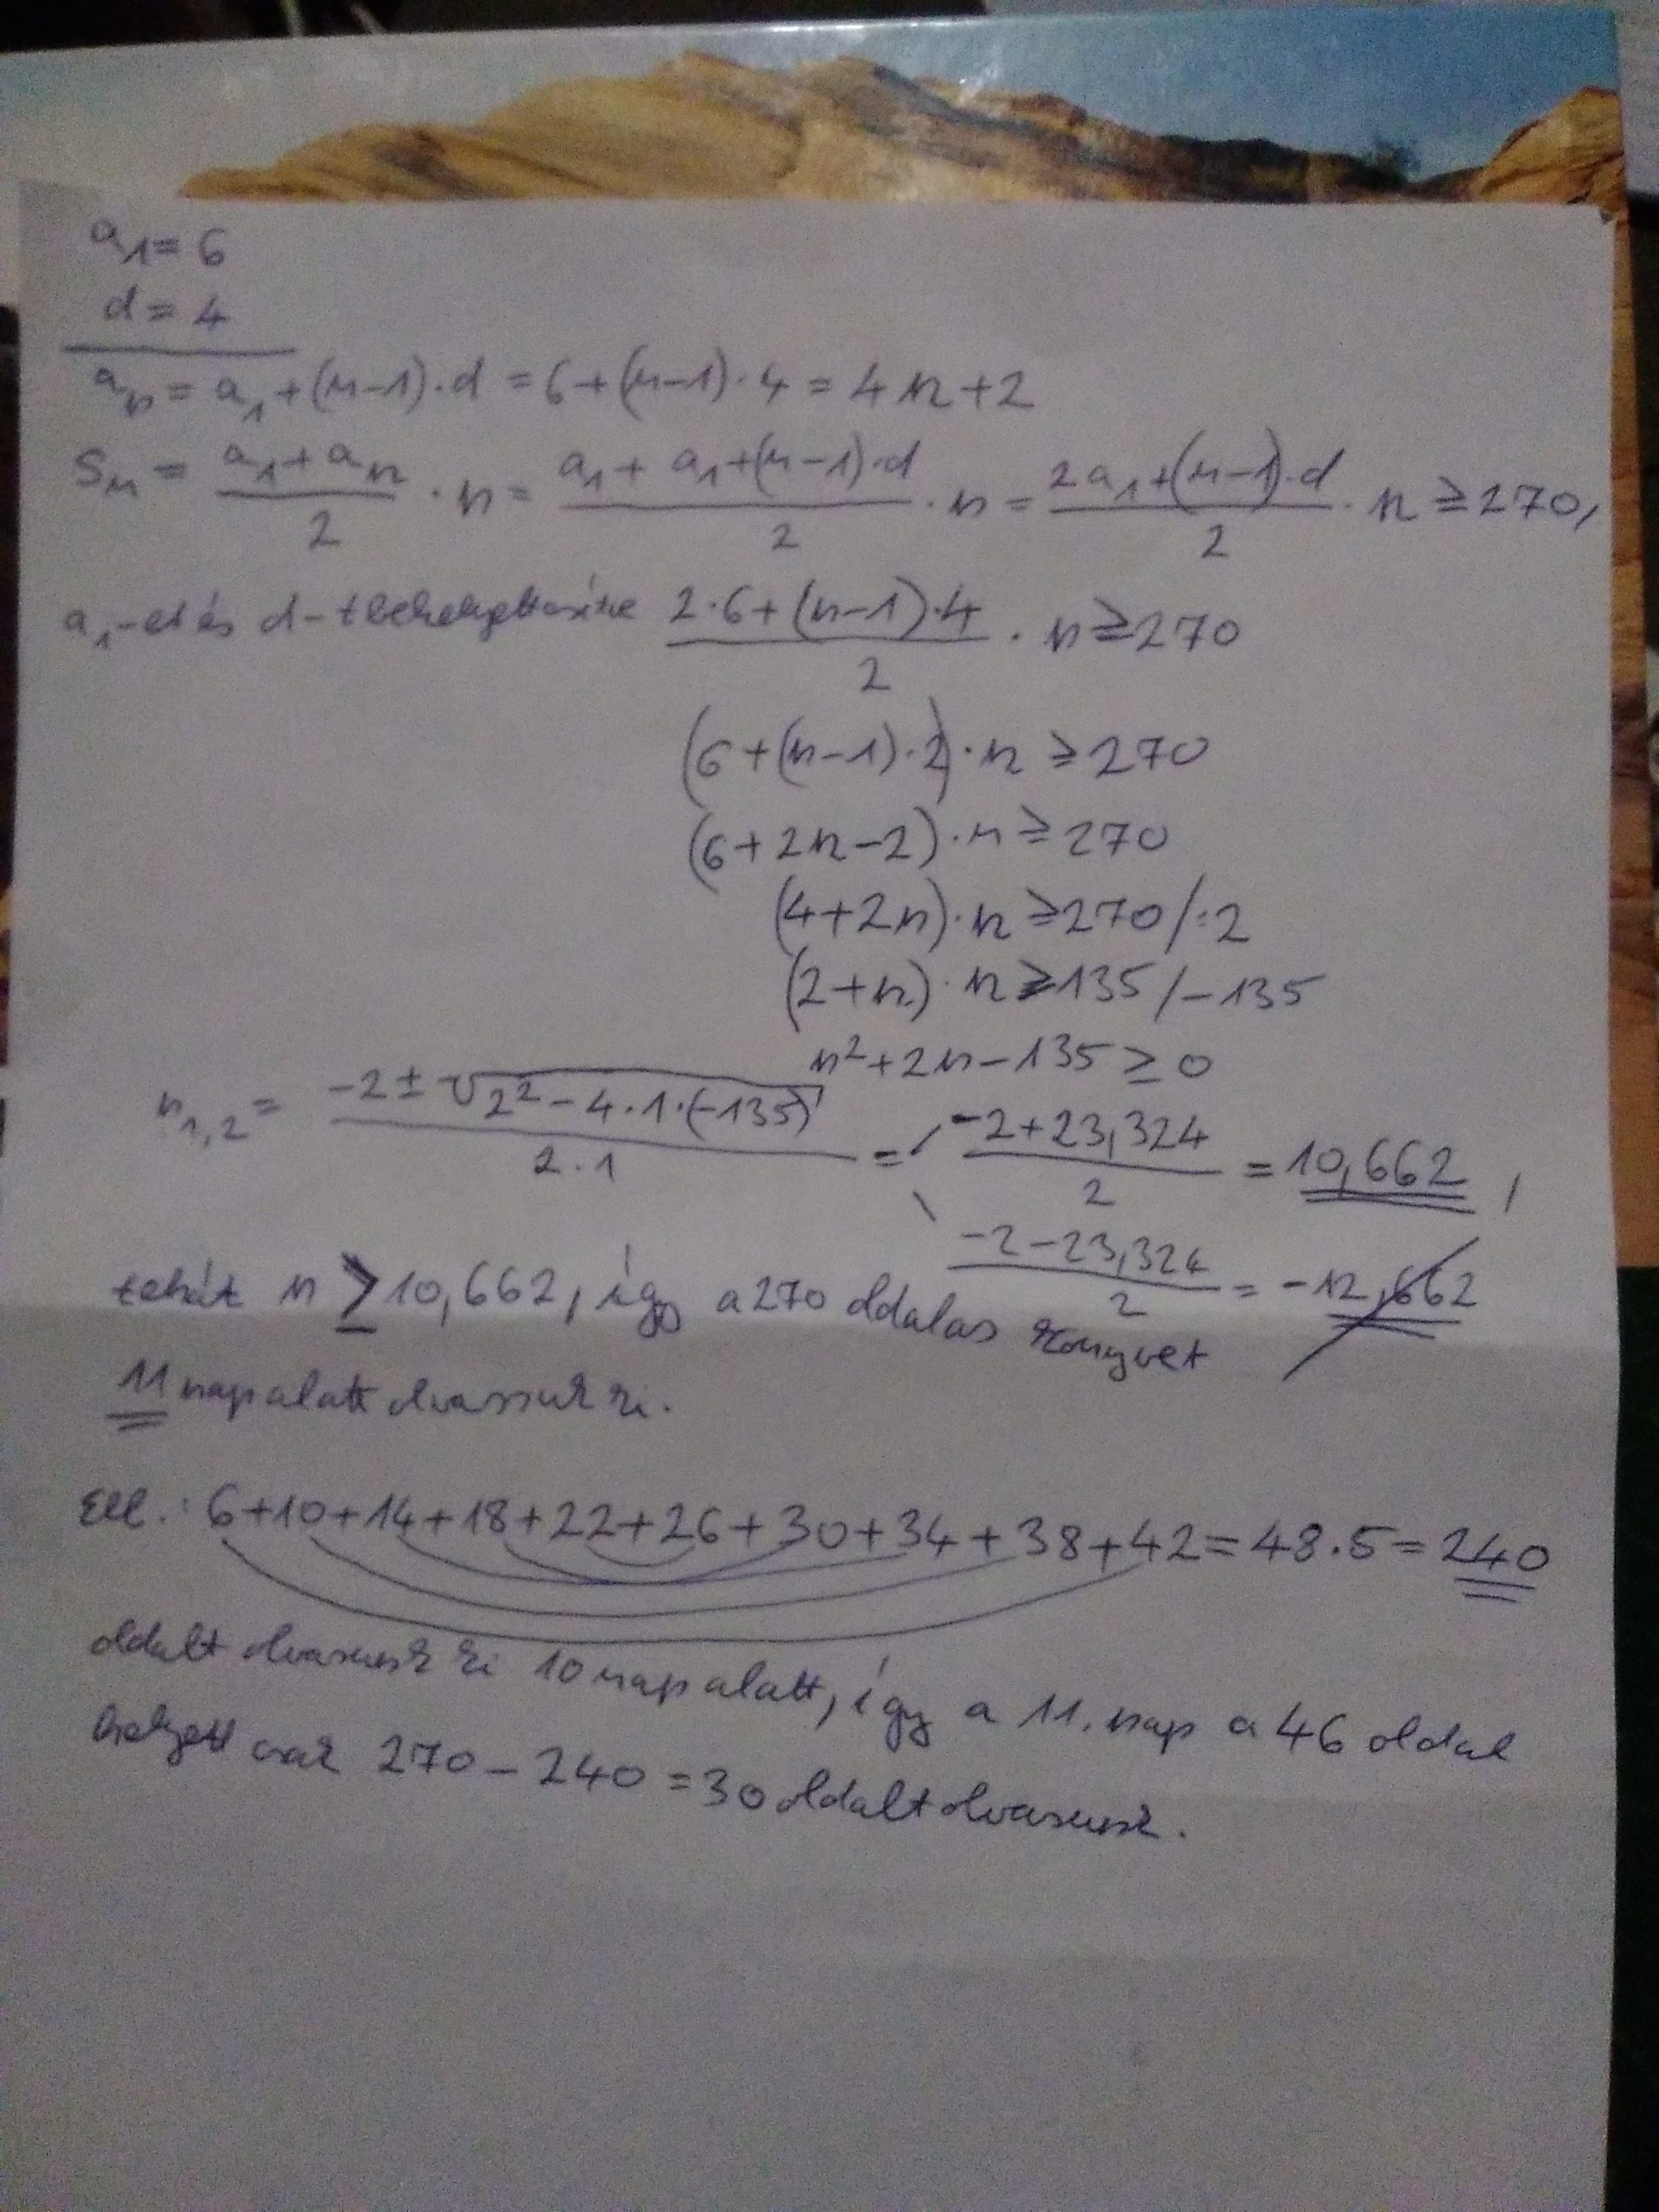 a₁ = 6
d = 4
aₙ = a₁ + (n-1)·d = 6 + (n-1)·4 = 4n + 2
Sₙ = (a₁ + aₙ)/2 · n = (a₁ + a₁ + (n-1)·d)/2 · n = (2a₁ + (n-1)·d)/2 · n ≥ 270,
a₁-et és d-t behelyettesítve (2·6 + (n-1)·4)/2 · n ≥ 270
(6 + (n-1)·2)·n ≥ 270
(6 + 2n - 2)·n ≥ 270
(4 + 2n)·n ≥ 270 /:2
(2 + n)·n ≥ 135 / -135
n² + 2n - 135 ≥ 0
n₁,₂ = (-2 ± √(2² - 4·1·(-135)))/(2·1) = (-2 + 23,324)/2 = 10,662,
(-2 - 23,324)/2 = -12,662
tehát n ≥ 10,662, így a 270 oldalas könyvet
11 nap alatt olvassuk ki.
Ell.: 6+10+14+18+22+26+30+34+38+42 = 48·5 = 240
oldalt olvasunk ki 10 nap alatt, így a 11. nap a 46 oldal
helyett csak 270 - 240 = 30 oldalt olvasunk.